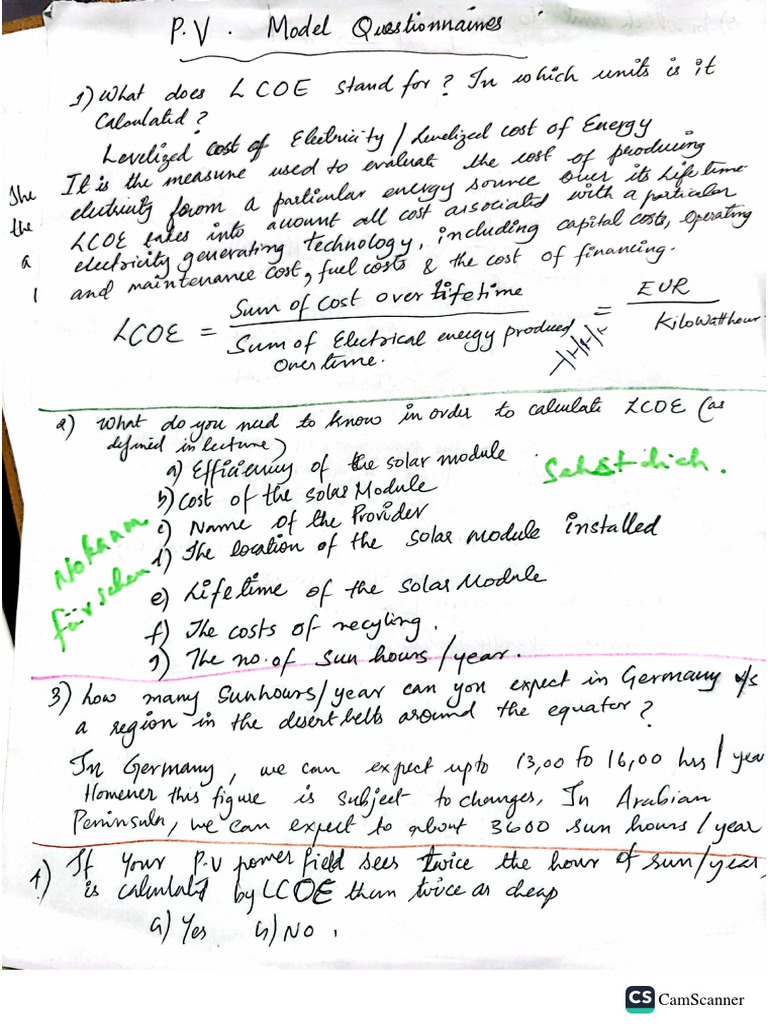 P.V. Model Questionnaines
1) What does LCOE stand for? In which units is it
Calculatid?
Levelized cost of Electricity / Levelized cost of Energy
It is the measure used to evaluate the cost of producing
The
electricity form a particular energy source over its life time.
the
LCOE takes into account all cost associated with a particular
a
electricity generating technology, including capital costs, operating
and maintenance cost, fuel costs & the cost of financing.
LCOE = Sum of Cost over lifetime / Sum of Electrical energy produced over time. = EUR / Kilowatthour
2) What do you need to know in order to calculate LCOE (as
defined in lecture)
a) Efficiency of the solar module
Sehst dich.
b) Cost of the solar Module
c) Name of the Provider
Nokaam
d) The location of the solar module installed
für sehen
e) Lifetime of the solar Module
f) The costs of recyling.
g) The no. of sun hours / year.
3) how many Sunhours / year can you expect in Germany v/s
a region in the desert belts around the equator?
In Germany, we can expect upto 13,00 to 16,00 hrs / year
However this figure is subject to changes, In Arabian
Peninsula, we can expect to about 3600 sun hours / year
4) If your P.V power field sees twice the hour of sun / year,
is calculatd by LCOE than twice as cheap
a) Yes b) No.
CS CamScanner